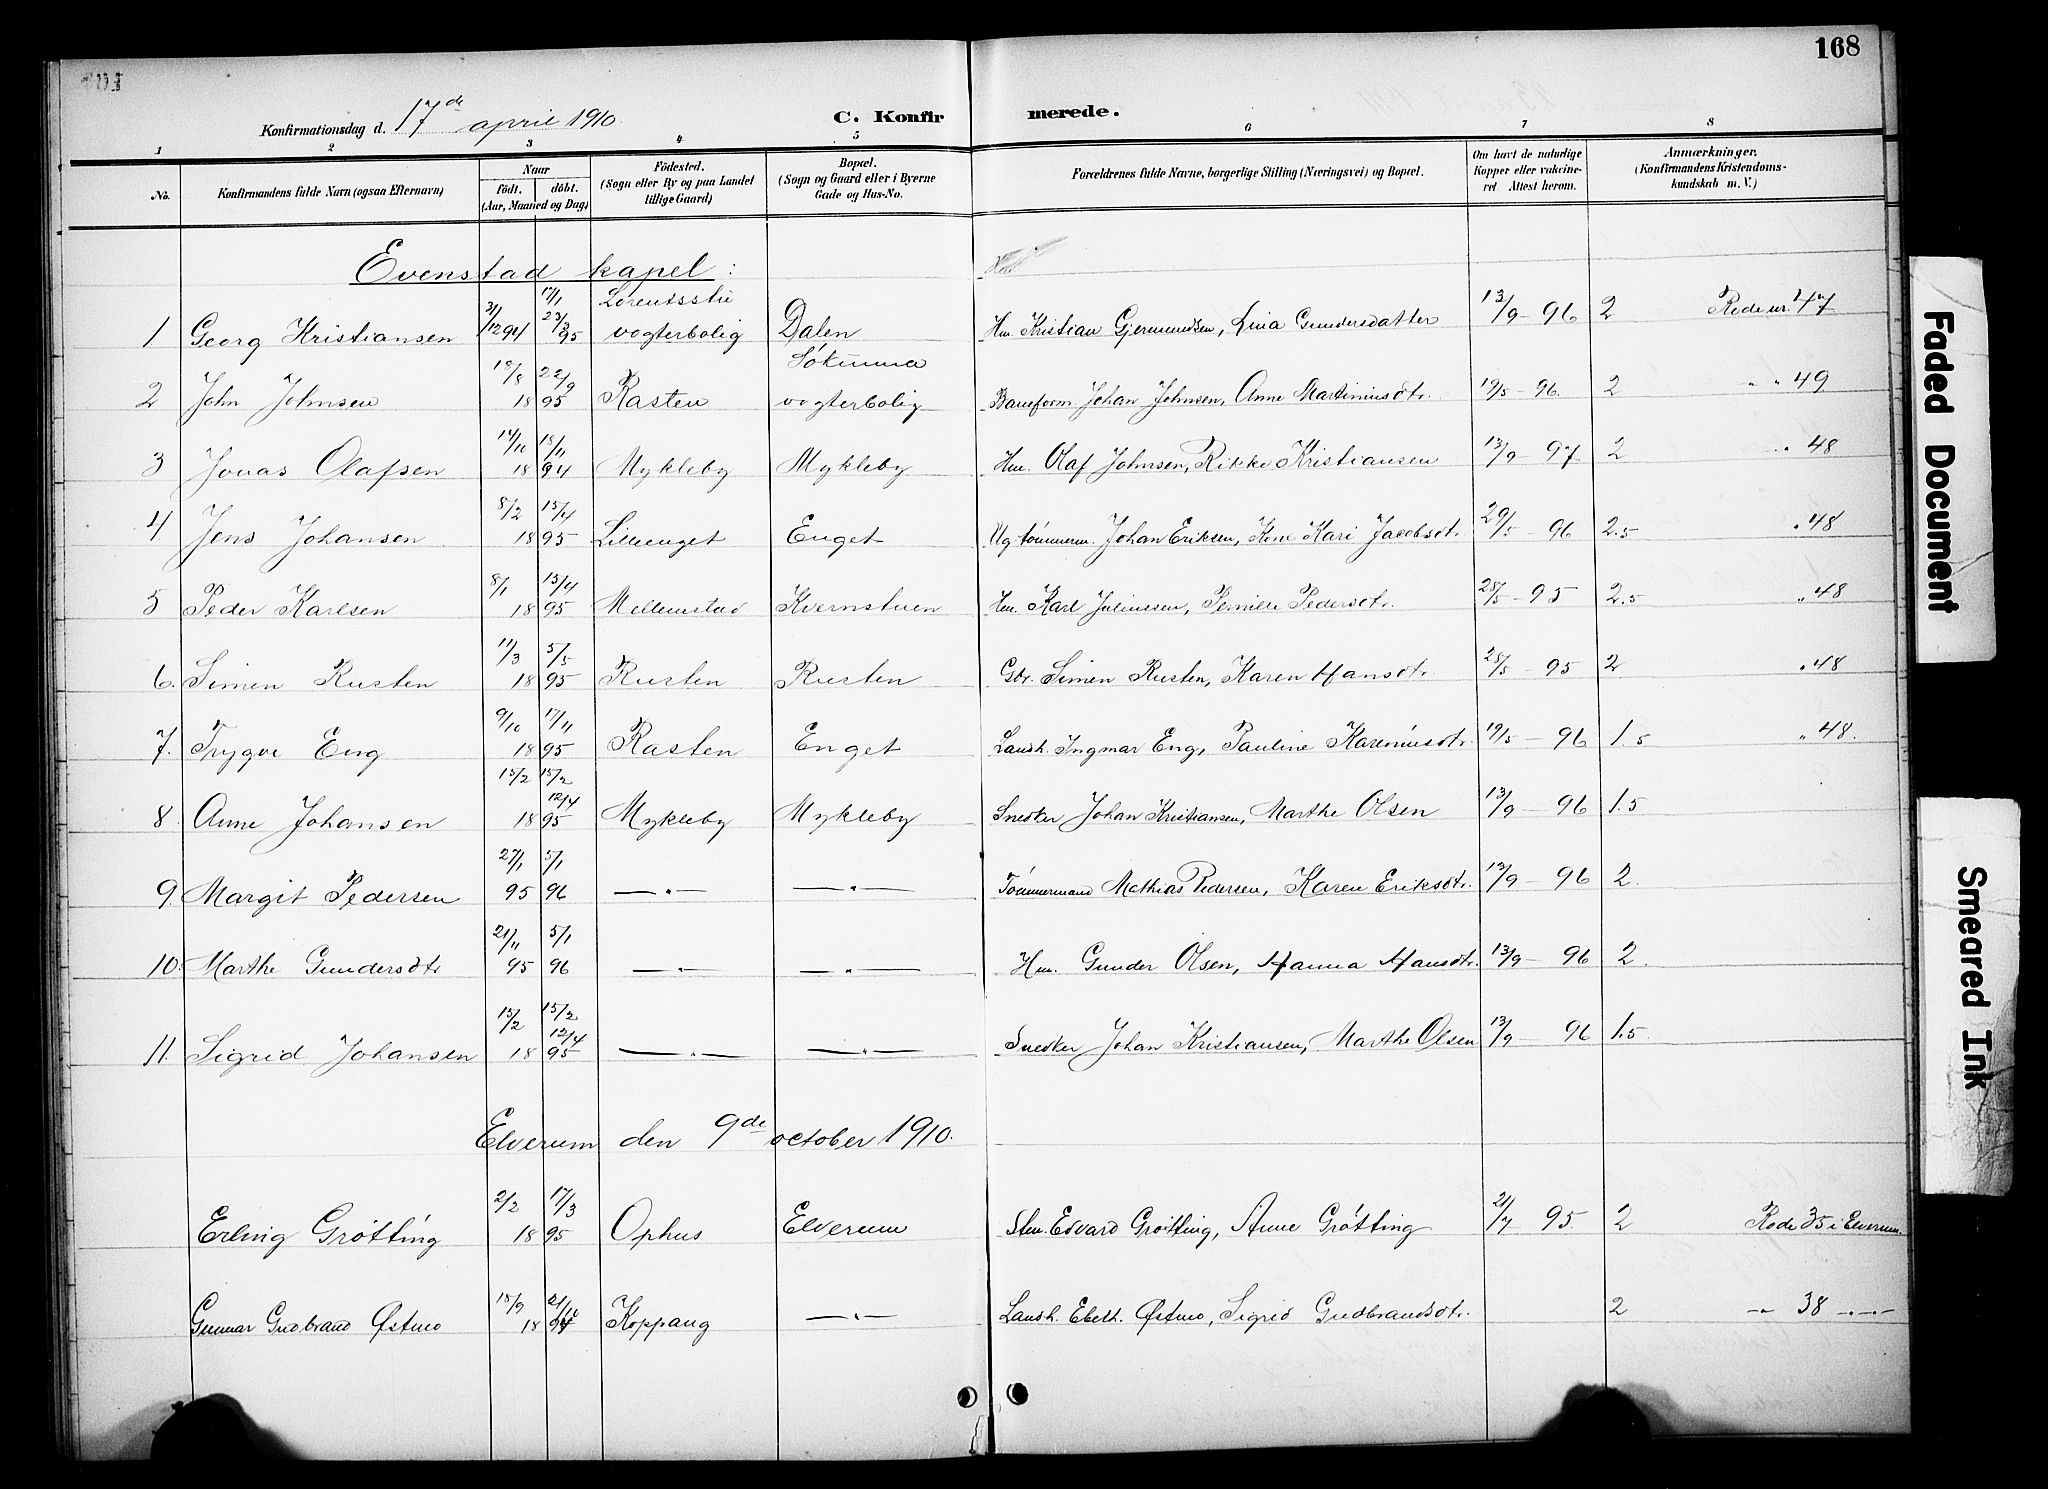 168
Konfirmationsdag d. 17de april 1910.
C. Konfirmerede.
1 2 3 4 5 6 7 8
No.
Konfirmandens fulde Navn (ogsaa Efternavn)
Naar
födt. döbt.
(Aar, Maaned og Dag)
Födested.
(Sogn eller By og paa Landet
tillige Gaard)
Bopæl.
(Sogn og Gaard eller i Byerne
Gade og Hus-No.
Forældrenes fulde Navne, borgerlige Stilling (Næringsvei) og Bopæl.
Om havt de naturlige
Kopper eller vakcine-
ret. Attest herom.
Anmærkninger.
(Konfirmandens Kristendoms-
kundskab m. V.)
Evenstad kapel:
1 Georg Kristiansen 31/12 94 17/1 23/3 95 Lorentsstu vogterbolig Dalen Hm. Kristian Gjermundsen, Lina Gundersdatter 13/9 - 96 2 Rode nr. 47
2 John Johnsen 18/8 22/9 18 95 Rasten Sökunna vogterbolig Baneform. Johan Johnsen, Anne Martiniusdtr. 19/5 - 96. 2 " " 49
3 Jonas Olafsen 14/10 18/11 18 94 Mykleby Mykleby Hm. Olaf Johnsen, Rikke Kristiansen 13/9 - 97 2 " 48
4 Jens Johansen 8/2 15/4 18 95 Lilleenget Enget Ug. tømmerm. Johan Eriksen, Kone Kari Jacobsdtr. 29/5 - 96 2.5 " 48
5 Peder Karlsen 8/1 13/4 18 95 Mellemstad Kvernstuen Hm. Karl Juliussen, Pernille Pedersdtr. 28/5 - 95 2.5 " 48
6. Simen Rusten 11/3 5/5 18 95 Rusten Rusten Gbr. Simen Rusten, Karen Hansdtr. 28/5 - 95 2 " 48
7. Trygve Eng 9/10 17/11 18 95 Rasten Enget Landh. Ingmar Eng, Pauline Kareniusdtr. 19/5 - 96 1.5 " 48.
8. Anne Johansen 15/2 15/2 12/4 18 95 Mykleby Mykleby Snedker Johan Kristiansen, Marthe Olsen 13/9 - 96 1.5
9. Margit Pedersen 27/1 5/1 95 96 — " — — " — Tömmermand Mathias Pedersen, Karen Eriksdtr. 13/9 - 96 2.
10. Marthe Gundersdtr 21/11 5/1 95 96 — " — — " — Hm. Gunder Olsen, Hanna Hansdtr. 13/9 - 96 2.
11. Sigrid Johansen 15/2 15/2 12/4 18 95 — " — — " — Snedker Johan Kristiansen, Marthe Olsen 13/9 - 96 1.5.
Elverum den 9de october 1910.
Erling Grötting 2/2 17/3 18 95 Ophus Elverum Stm. Edvard Gröitting, Anne Grötting 21/7 - 95. 2 Rode 35 i Elverum.
Gunnar Gudbrand Østmo 15/9 21/10 18 94 Koppang — " — Landh. Ebeth. Østmo, Sigrid Gudbrandsdtr. 2 " 38 - " -
Faded Document
Smeared Ink